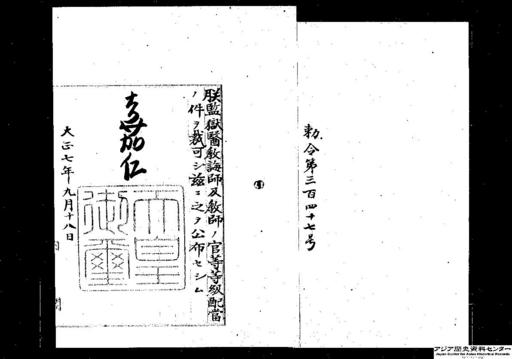 勅令第三百四十七号
朕監獄醫教誨師及教師ノ官等等級配當
ノ件ヲ裁可シ茲ニ之ヲ公布セシム
嘉仁
天皇
御璽
大正七年九月十八日
アジア歴史資料センター
Japan Center for Asian Historical Records